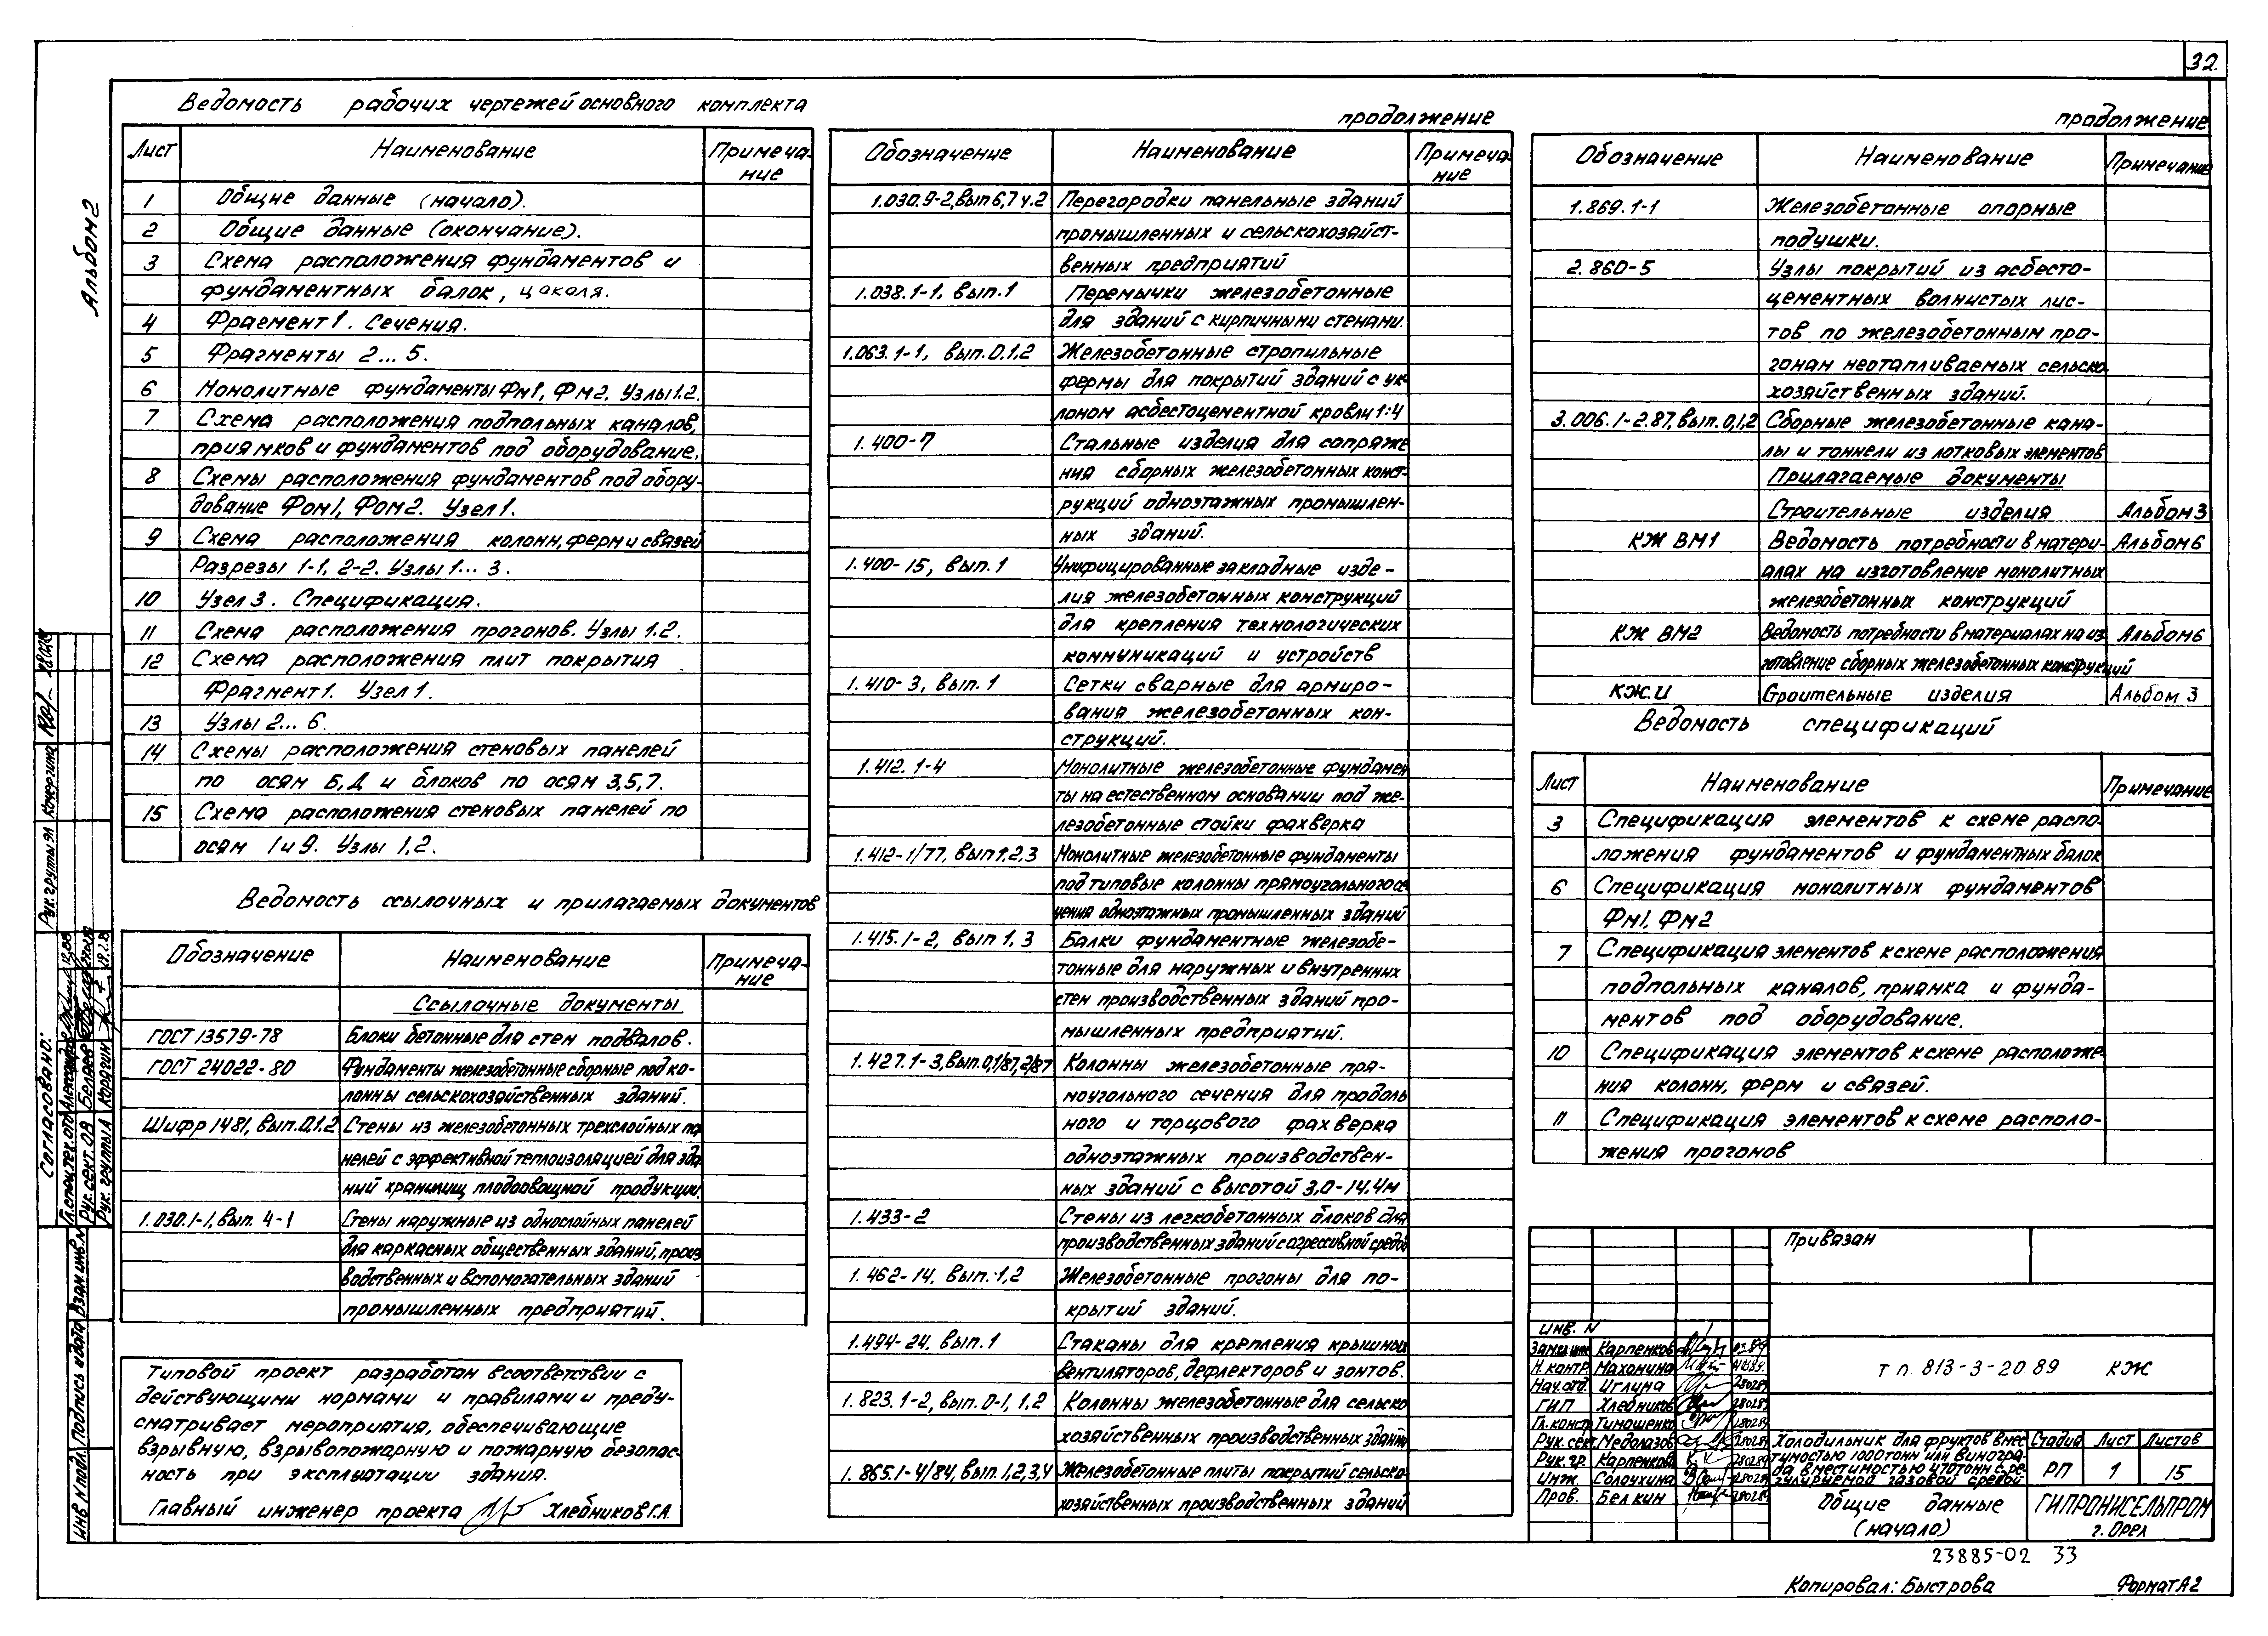 32
Альбом 2
Ведомость рабочих чертежей основного комплекта
Лист Наименование Примеча-
ние
1 Общие данные (начало).
2 Общие данные (окончание).
3 Схема расположения фундаментов и
фундаментных балок, цоколя.
4 Фрагмент 1. Сечения.
5 Фрагменты 2...5.
6 Монолитные фундаменты Фм1, Фм2. Узлы 1.2.
7 Схема расположения подпольных каналов,
приямков и фундаментов под оборудование.
8 Схемы расположения фундаментов под обору-
дование Фом1, Фом2. Узел 1.
9 Схема расположения колонн, ферм и связей
Разрезы 1-1, 2-2. Узлы 1...3.
10 Узел 3. Спецификация.
11 Схема расположения прогонов. Узлы 1.2.
12 Схема расположения плит покрытия
Фрагмент 1. Узел 1.
13 Узлы 2...6.
14 Схемы расположения стеновых панелей
по осям Б, Д и блоков по осям 3,5,7.
15 Схема расположения стеновых панелей по
осям 1 и 9. Узлы 1,2.
Ведомость ссылочных и прилагаемых документов
Обозначение Наименование Примеча-
ние
Ссылочные документы
ГОСТ 13579-78 Блоки бетонные для стен подвалов.
ГОСТ 24022-80 Фундаменты железобетонные сборные под ко-
лонны сельскохозяйственных зданий.
Шифр 1481, вып.0,1.2 Стены из железобетонных трехслойных па
нелей с эффективной теплоизоляцией для зда
ний хранилищ плодоовощной продукции.
1.030.1-1, вып. 4-1 Стены наружные из однослойных панелей
для каркасных общественных зданий, произ
водственных и вспомогательных зданий
промышленных предприятий.
Типовой проект разработан в соответствии с
действующими нормами и правилами и преду-
сматривает мероприятия, обеспечивающие
взрывную, взрывопожарную и пожарную безопас-
ность при эксплуатации здания.
Главный инженер проекта Хлебников Г.А.
продолжение
Обозначение Наименование Примеча-
ние
1.030.9-2, вып 6,7 ч.2 Перегородки панельные зданий
промышленных и сельскохозяйст-
венных предприятий
1.038.1-1, вып.1 Перемычки железобетонные
для зданий с кирпичными стенами.
1.063.1-1, вып.0,1,2 Железобетонные стропильные
фермы для покрытий зданий с ук-
лоном асбестоцементной кровли 1:4
1.400-7 Стальные изделия для сопряже
ния сборных железобетонных конст-
рукций одноэтажных промышлен-
ных зданий.
1.400-15, вып.1 Унифицированные закладные изде-
лия железобетонных конструкций
для крепления технологических
коммуникаций и устройств
1.410-3, вып.1 Сетки сварные для армиро-
вания железобетонных кон-
струкций.
1.412.1-4 Монолитные железобетонные фундамен
ты на естественном основании под же-
лезобетонные стойки фахверка
1.412-1/77, вып 1.2,3 Монолитные железобетонные фундаменты
под типовые колонны прямоугольного се
чения одноэтажных промышленных зданий
1.415.1-2, вып 1,3 Балки фундаментные железобе-
тонные для наружных и внутренних
стен производственных зданий про-
мышленных предприятий.
1.427.1-3, вып.0,1/87,2/87 Колонны железобетонные пря-
моугольного сечения для продоль
ного и торцового фахверка
одноэтажных производствен-
ных зданий с высотой 3,0-14,4м
1.433-2 Стены из легкобетонных блоков для
производственных зданий с агрессивной средой
1.462-14, вып.1,2 Железобетонные прогоны для по-
крытий зданий.
1.494-24, вып.1 Стаканы для крепления крышных
вентиляторов, дефлекторов и зонтов.
1.823.1-2, вып.0-1, 1,2 Колонны железобетонные для сельско
хозяйственных производственных зданий
1.865.1-4/84, вып.1,2,3,4 Железобетонные плиты покрытий сельско-
хозяйственных производственных зданий
продолжение
Обозначение Наименование Примечание
1.869.1-1 Железобетонные опорные
подушки.
2.860-5 Узлы покрытий из асбесто-
цементных волнистых лис-
тов по железобетонным про-
гонам неотапливаемых сельско
хозяйственных зданий.
3.006.1-2.87, вып.0,1,2 Сборные железобетонные кана-
лы и тоннели из лотковых элементов
Прилагаемые документы
Строительные изделия Альбом 3
КЖ ВМ1 Ведомость потребности в матери- Альбом 6
алах на изготовление монолитных
железобетонных конструкций
КЖ ВМ2 Ведомость потребности в материалах на из Альбом 6
готовление сборных железобетонных конструкций
КЖ.И Строительные изделия Альбом 3
Ведомость спецификаций
Лист Наименование Примечание
3 Спецификация элементов к схеме распо-
ложения фундаментов и фундаментных балок
6 Спецификация монолитных фундаментов
Фм1, Фм2
7 Спецификация элементов к схеме расположения
подпольных каналов, приямка и фунда-
ментов под оборудование.
10 Спецификация элементов к схеме расположе-
ния колонн, ферм и связей.
11 Спецификация элементов к схеме располо-
жения прогонов
Привязан
Инв. N
Карпенков
Н. контр. Махонина
Нач. отд. Иглина 280289
ГИП Хлебников 280289
Гл. констр Тимошенко 280289
Рук. сект. Медолазов 280289
Рук. гр. Карпенкова 280289
Инж. Солоухина 280289
Пров. Белкин 280289
т.п 813-3-20 89 КЖ
Холодильник для фруктов вмес
тимостью 1000тонн или виногра-
да вместимостью 470тонн с ре-
гулируемой газовой средой.
Стадия Лист Листов
РП 1 15
Общие данные
(начало)
ГИПРОНИСЕЛЬПРОМ
г. Орел
23885-02 33
Копировал: Быстрова
Формат А2
Согласовано:
Гл. спец. тех. отд Александров
Рук. сект. ОВ Беляев
Рук. группы А Корягин
Рук. группы эл Кочергина
Взам. инв. N
Подпись и дата
Инв N подл.